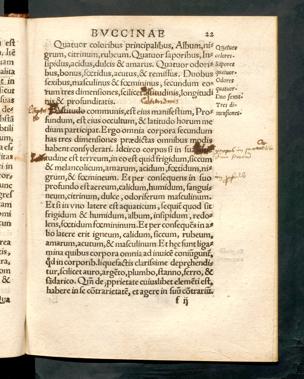 BVCCINAE 22
Quatuor coloribus principalibus, Album, ni-
grum, citrinum, rubeum. Quatuor saporibus, In-
sipidus, acidus, dulcis & amarus. Quatuor odori-
bus, bonus, fœtidus, acutus, & remissus. Duobus
sexibus, masculinus & fœmininus, secundum eo
rum tres dimensiones, scilicet altitudinis, longitudi
nis & profunditatis.
communis, est eius manifestum, Pro-
fundum, est eius occultum, & latitudo horum me
dium participat. Ergo omnia corpora secundum
has tres dimensiones prædictis omnibus modis
habent considerari. Ideirco corpus si in sua
tudine est terreum, in eo est quid frigidum, siccum
& melancolicum, amarum, acidum, fœtidum, ni-
grum, & fœmininum. Et per consequens in suo
profundo est aereum, calidum, humidum, sangui-
neum, citrinum, dulce, odoriferum masculinum.
Et si in vno latere est aquaticum, sequit̃ quod sit
frigidum & humidum, album, insipidum, redo-
lens, fœtidum, fœmininum. Et per consequẽs in a-
lio latere erit igneum, calidum, siccum, rubeum,
amarum, acutum, & masculinum Et hęc sunt liga-
mina quibus corpora omnia ad inuicẽ coniungunt̃,
qd̃ in corporib. liquefactis clarissime deprẽhendi
tur, scilicet auro, argẽto, plumbo, stanno, ferro, &
sidarico. Qm̃ de ꝓprietate cuiuslibet elemẽti est,
habere in se cõtrarietatẽ, et agere in suũ cõtrariũ.
f ij
Quatuor
colores.
Sapores
quatuor.
Odores
quatuor.
Duo sexus.
Tres di-
mensiones.